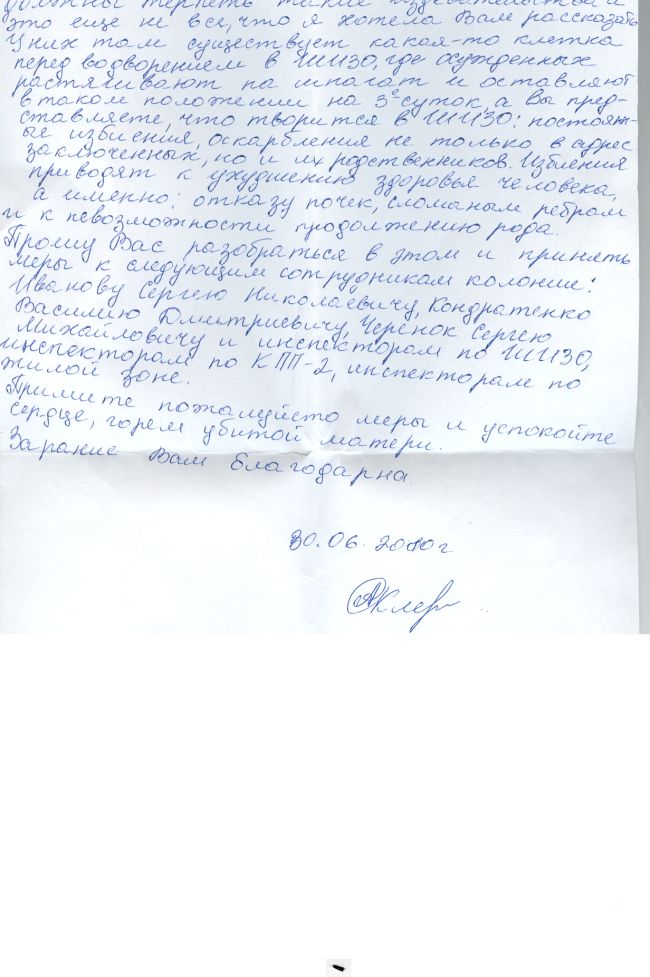 должны терпеть такие издевательства и
это еще не все, что я хотела Вам рассказать
У них там существует какая-то клетка
перед водворением в ШИЗО, где осужденных
растягивают на шпагат и оставляют
в таком положении на 3е суток, а Вы пред-
ставляете, что творится в ШИЗО: постоян-
ые избиения, оскарбления не только в адрес
заключенных, но и их родственников. Избиения
приводят к ухудшению здоровья человека,
а именно: отказу почек, сломаным ребрам
и к невозможности продолжению рода.
Прошу Вас разобраться в этом и принять
меры к следующим сотрудникам колонии:
Иванову Сергею Николаевичу, Кондратенко
Василию Дмитриевичу, Черенок Сергею
Михайловичу и инспекторам по ШИЗО,
инспекторам по КПП-2, инспекторам по
жилой зоне.
Примите пожалуйсто меры и успокойте
сердце, горем убитой матери.
Зарание Вам благодарна.
30.06.2010г